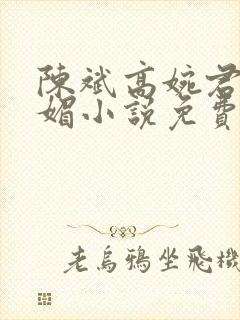 陳斌高婉君
媚小說免費
老烏鴉坐飛機